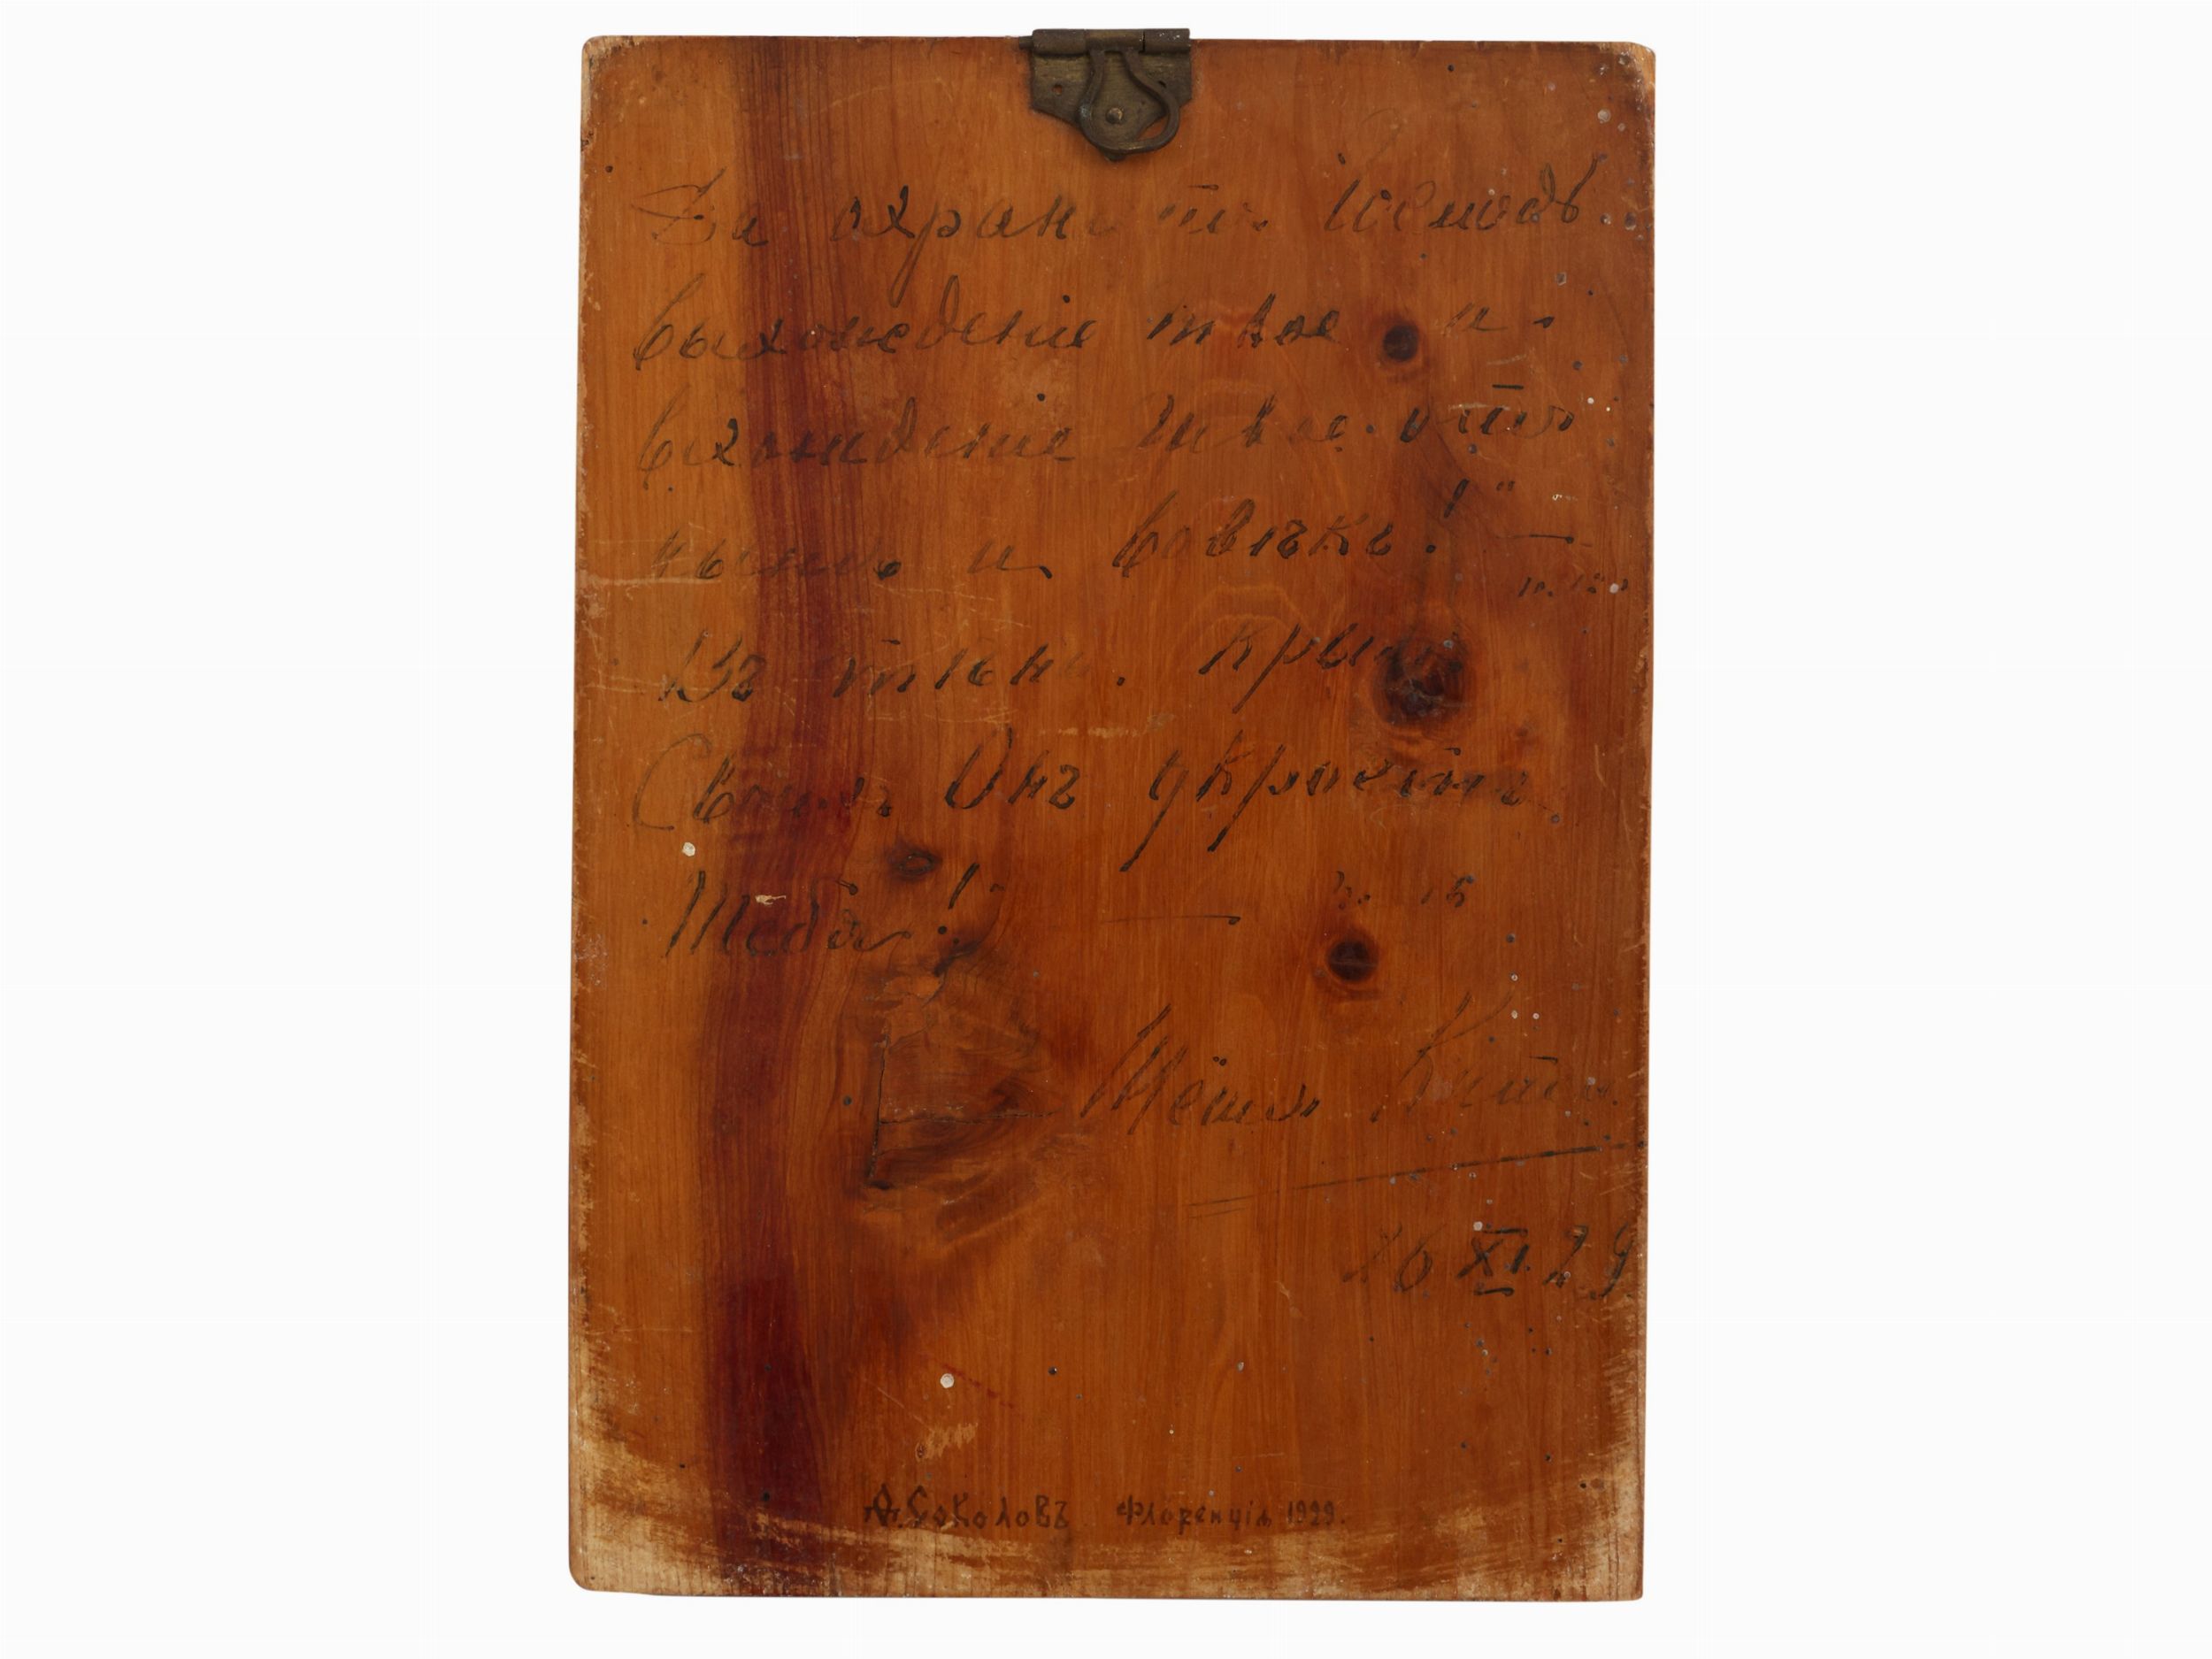 Да охранитъ Господь
выхожденіе твое и
вхожденіе твое отъ
нынѣ и вовѣкъ! —
п. 120
Въ тѣни крылъ
Своихъ Онъ укроетъ
Тебя! — п. 16
Тётя Катя
26 XI 29
Ѳ. Соколовъ Флоренцiя 1929.